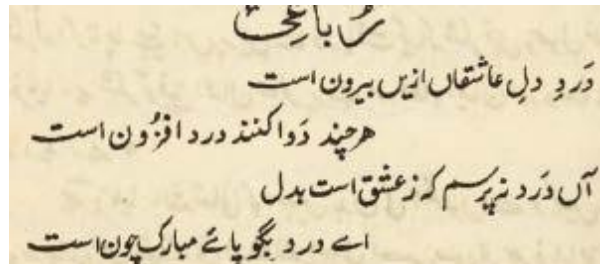 رُباعی
دَردِ دلِ عاشقاں ازیں بیرون است
هرچند دَوا کنند درد افزُون است
آں دَرد نہ پرسم کہ زعشق است بدل
اے درد بگو پائے مبارک چون است